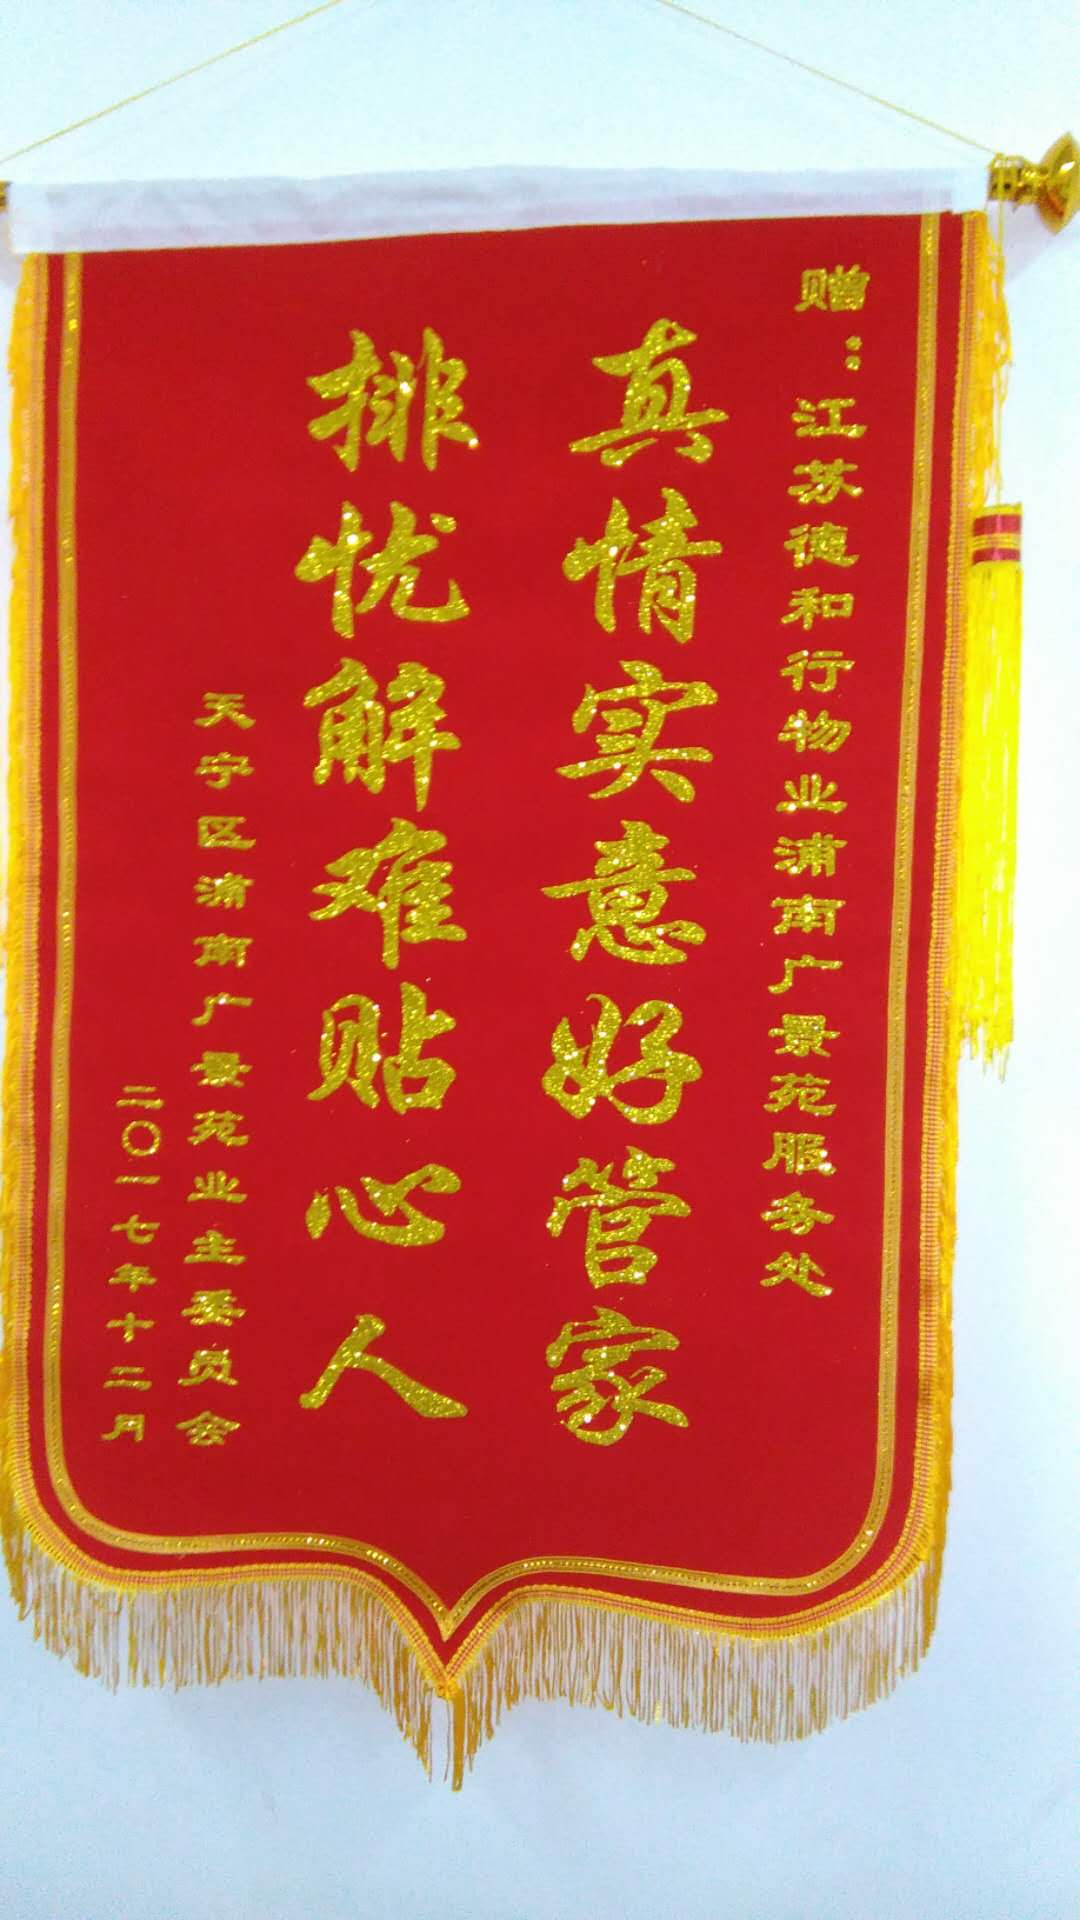 赠：江苏德和行物业浦南广景苑服务处
真情实意好管家
排忧解难贴心人
天宁区浦南广景苑业主委员会
二〇一七年十二月